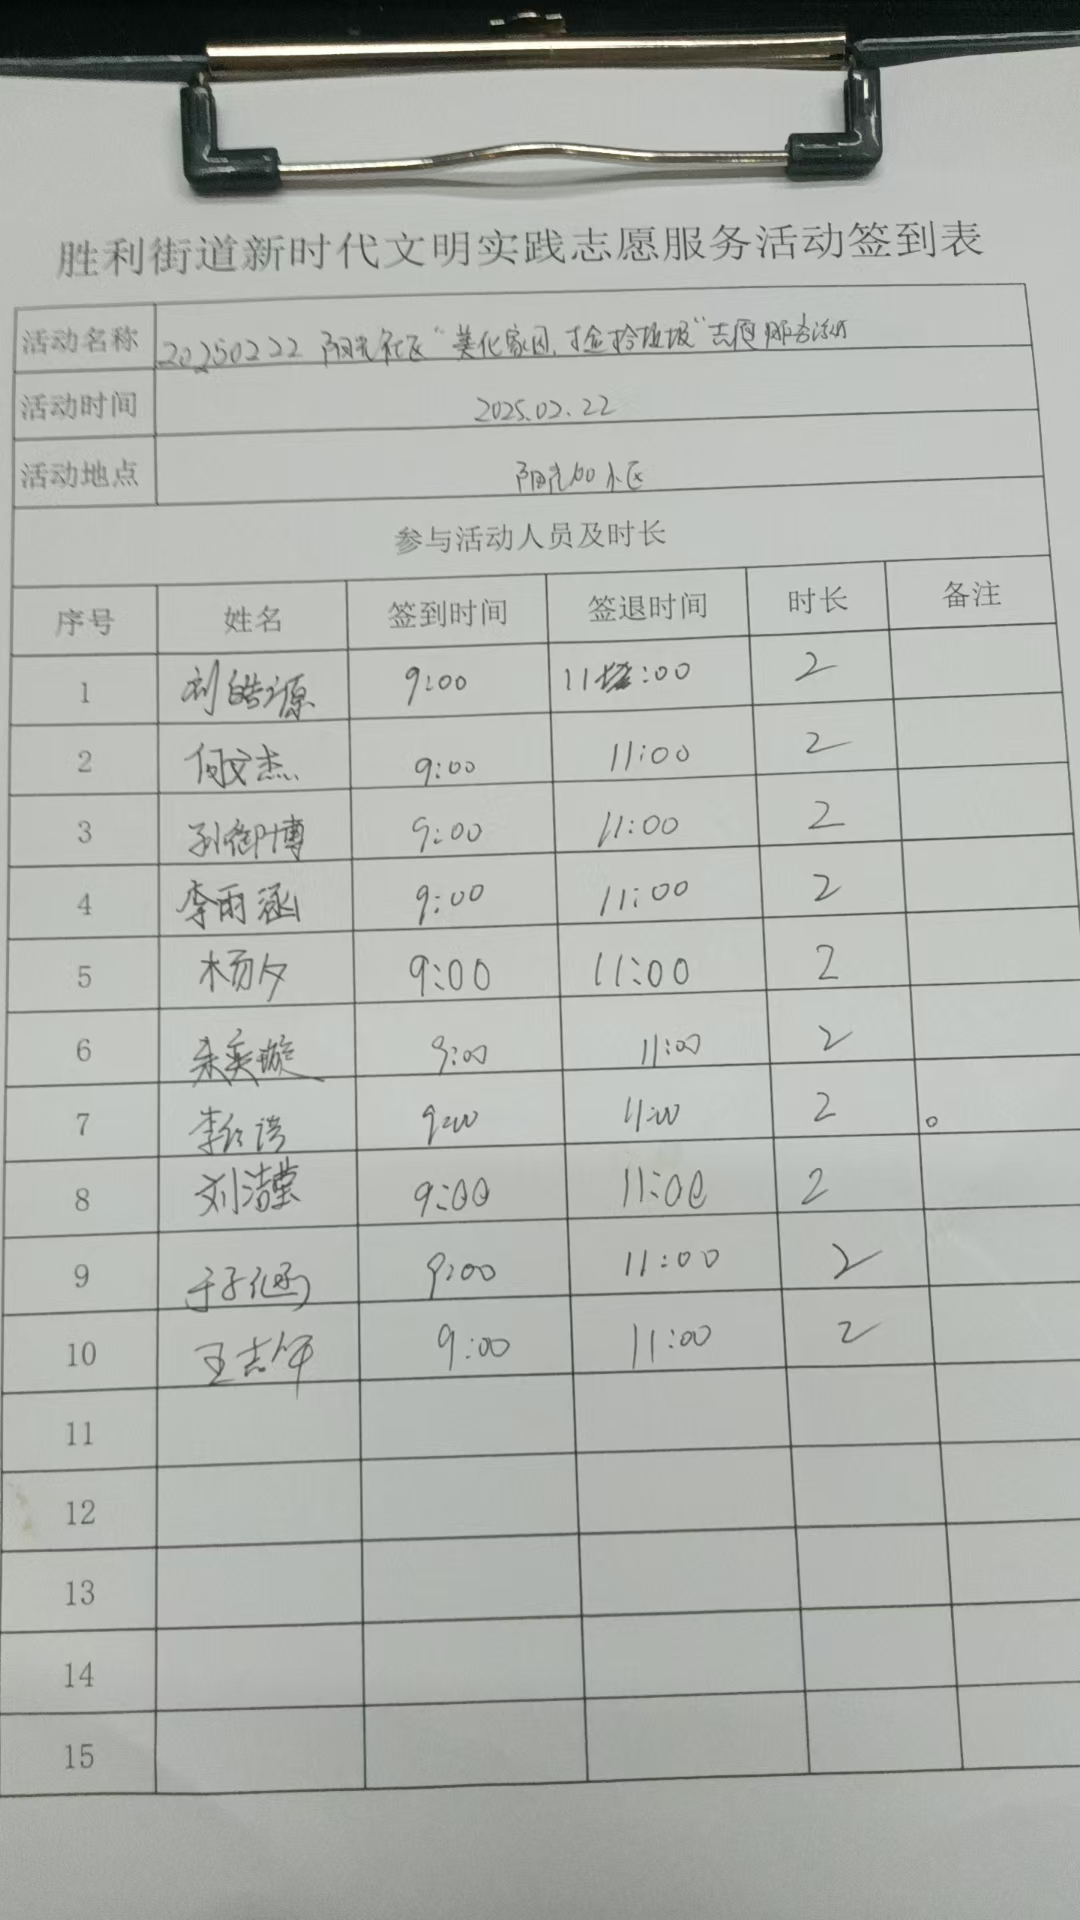 胜利街道新时代文明实践志愿服务活动签到表
活动名称 20250222 阳光社区“美化家园,捡拾垃圾”志愿服务活动
活动时间 2025.02.22
活动地点 阳光100小区
参与活动人员及时长
序号 姓名 签到时间 签退时间 时长 备注
1 刘皓源 9:00 11:00 2
2 何文杰 9:00 11:00 2
3 孙御博 9:00 11:00 2
4 李雨涵 9:00 11:00 2
5 杨夕 9:00 11:00 2
6 朱奕璇 9:00 11:00 2
7 9:00 11:00 2 。
8 刘洁莹 9:00 11:00 2
9 于子涵 9:00 11:00 2
10 王志军 9:00 11:00 2
11
12
13
14
15